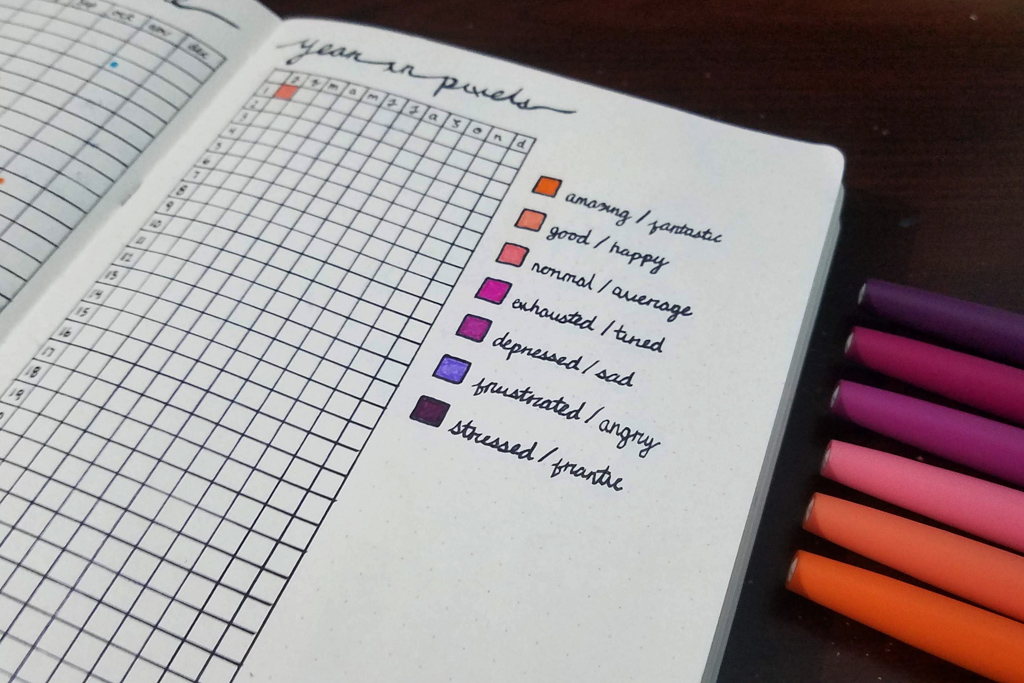 sep oct nov dec
year in pixels
j f m a m j j a s o n d
1
2
3
4
5
6
7
8
9
10
11
12
13
14
15
16
17
18
19
amazing / fantastic
good / happy
normal / average
exhausted / tired
depressed / sad
frustrated / angry
stressed / frantic